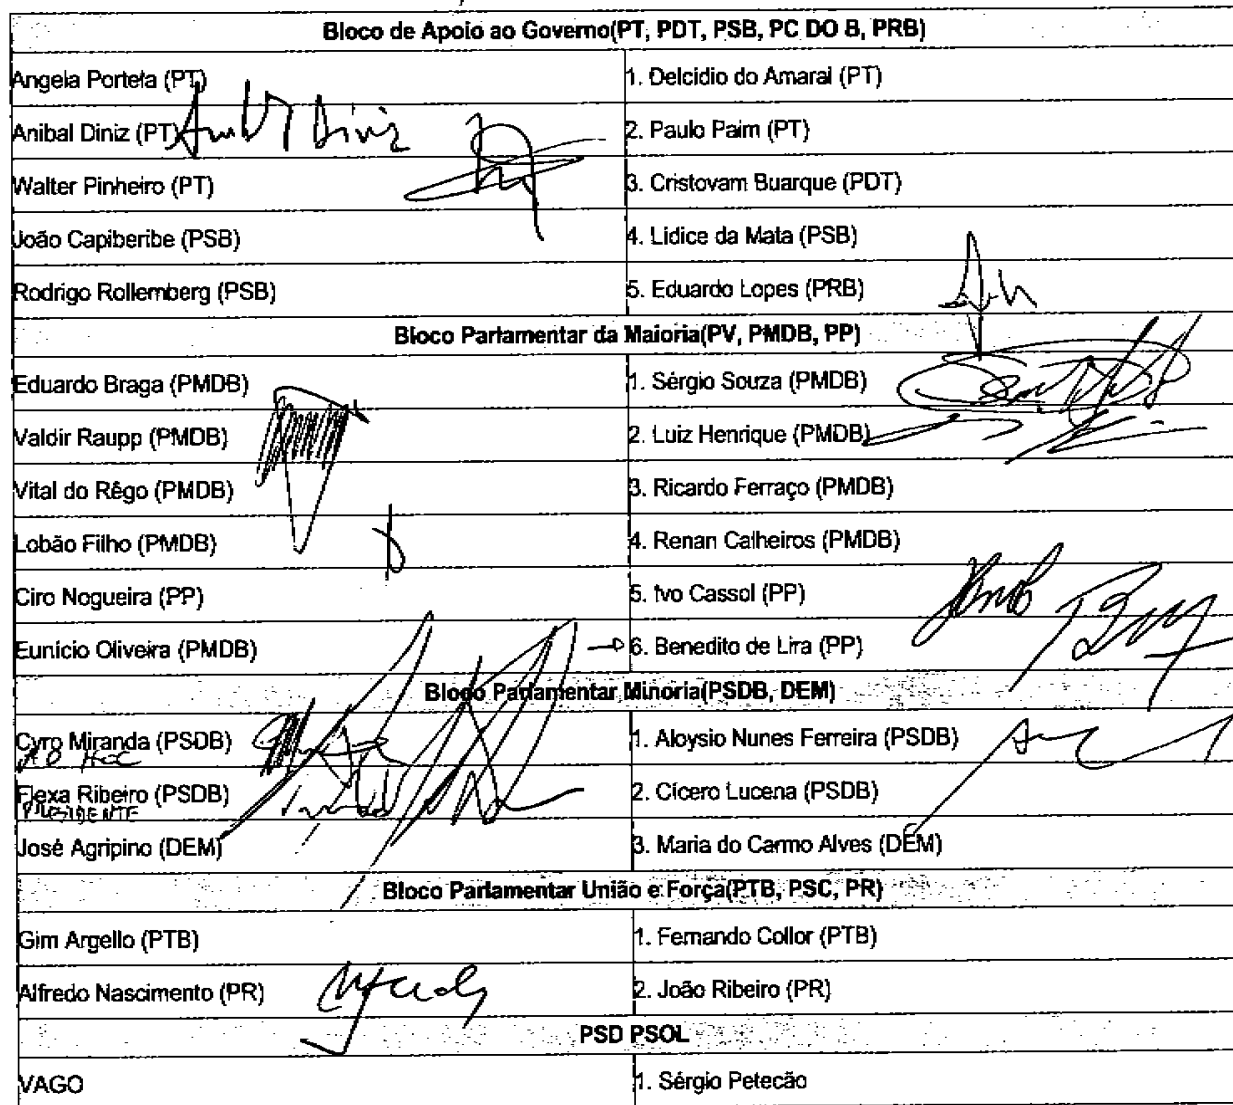 Bloco de Apoio ao Governo(PT, PDT, PSB, PC DO B, PRB)
Angela Portela (PT) 1. Delcídio do Amaral (PT)
Anibal Diniz (PT) Anibal Diniz 2. Paulo Paim (PT)
Walter Pinheiro (PT) 3. Cristovam Buarque (PDT)
João Capiberibe (PSB) 4. Lidice da Mata (PSB)
Rodrigo Rollemberg (PSB) 5. Eduardo Lopes (PRB)
Bloco Parlamentar da Maioria(PV, PMDB, PP)
Eduardo Braga (PMDB) 1. Sérgio Souza (PMDB)
Valdir Raupp (PMDB) 2. Luiz Henrique (PMDB)
Vital do Rêgo (PMDB) 3. Ricardo Ferraço (PMDB)
Lobão Filho (PMDB) 4. Renan Calheiros (PMDB)
Ciro Nogueira (PP) 5. Ivo Cassol (PP)
Eunício Oliveira (PMDB) 6. Benedito de Lira (PP)
Bloco Parlamentar Minoria(PSDB, DEM)
Cyro Miranda (PSDB) 1. Aloysio Nunes Ferreira (PSDB)
AD HOC
Flexa Ribeiro (PSDB) 2. Cícero Lucena (PSDB)
PRESIDENTE
José Agripino (DEM) 3. Maria do Carmo Alves (DEM)
Bloco Parlamentar União e Força(PTB, PSC, PR)
Gim Argello (PTB) 1. Fernando Collor (PTB)
Alfredo Nascimento (PR) 2. João Ribeiro (PR)
PSD PSOL
VAGO 1. Sérgio Petecão